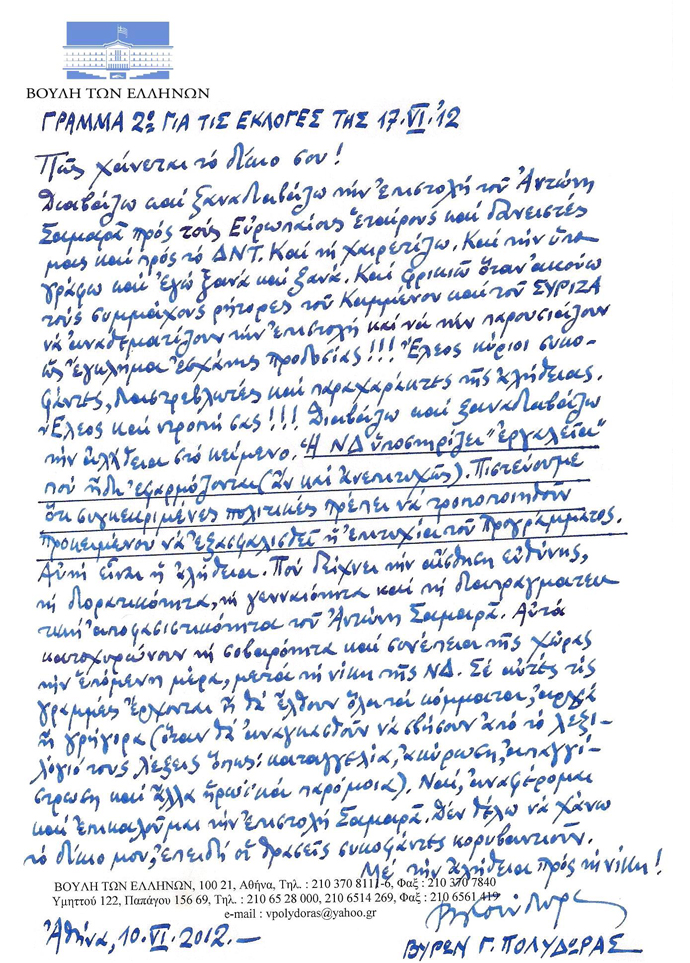 ΒΟΥΛΗ ΤΩΝ ΕΛΛΗΝΩΝ
ΓΡΑΜΜΑ 2ο ΓΙΑ ΤΙΣ ΕΚΛΟΓΕΣ ΤΗΣ 17·VI·'12
Πῶς χάνεται τό δίκιο σου!
Διαβάζω καί ξαναδιαβάζω τήν ἐπιστολή τοῦ Ἀντώνη
Σαμαρᾶ πρός τούς Εὐρωπαίους ἑταίρους καί δανειστές
μας καί πρός τό ΔΝΤ. Καί τή χαιρετίζω. Καί τήν ὑπο-
γράφω καί ἐγώ ξανά καί ξανά. Καί φρικιῶ ὅταν ἀκούω
τούς συμμάχους ρήτορες τοῦ Καμμένου καί τοῦ ΣΥΡΙΖΑ
νά ἀναθεματίζουν τήν ἐπιστολή καί νά τήν παρουσιάζουν
ὡς ἔγκλημα ἐσχάτης προδοσίας!!! Ἔλεος κύριοι συκο-
φάντες, διαστρεβλωτές καί παραχαράκτες τῆς ἀλήθειας.
Ἔλεος καί ντροπή σας!!! Διαβάζω καί ξαναδιαβάζω
τήν ἀλήθεια στό κείμενο. "Ἡ ΝΔ ὑποστηρίζει "ἐργαλεῖα"
πού ἤδη ἐφαρμόζονται (ἄν καί ἀνεπιτυχῶς). Πιστεύουμε
ὅτι συγκεκριμένες πολιτικές πρέπει νά τροποποιηθοῦν
προκειμένου νά ἐξασφαλισθεῖ ἡ ἐπιτυχία τοῦ Προγράμματος.
Αὐτή εἶναι ἡ ἀλήθεια. Πού δείχνει τήν αἴσθηση εὐθύνης,
τή διορατικότητα, τή γενναιότητα καί τή διαπραγματευ
τική ἀποφασιστικότητα τοῦ Ἀντώνη Σαμαρᾶ. Αὐτά
κατοχυρώνουν τή σοβαρότητα καί συνέπεια τῆς χώρας
τήν ἑπόμενη μέρα, μετά τή νίκη τῆς ΝΔ. Σέ αὐτές τίς
γραμμές ἔρχονται ἤ θά ἔλθουν ὅλα τά κόμματα, ἀργά
ἤ γρήγορα (ὅταν θά ἀναγκασθοῦν νά σβήσουν ἀπό τό λεξι-
λόγιό τους λέξεις ὅπως: καταγγελία, ἀκύρωση, ἀπαγγί-
στρωση καί ἄλλα ἡρωϊκά παρόμοια). Ναί, ἀναφέρομαι
καί ἐπικαλοῦμαι τήν ἐπιστολή Σαμαρᾶ. Δέν θέλω νά χάνω
τό δίκιο μου, ἐπειδή οἱ θρασεῖς συκοφάντες κορυβαντιοῦν.
Μέ τήν ἀλήθεια πρός τή νίκη!
ΒΟΥΛΗ ΤΩΝ ΕΛΛΗΝΩΝ, 100 21, Αθήνα, Τηλ. : 210 370 8111-6, Φαξ : 210 370 7840
Υμηττού 122, Παπάγου 156 69, Τηλ. : 210 65 28 000, 210 6514 269, Φαξ : 210 6561 419
e-mail : vpolydoras@yahoo.gr
Ἀθήνα, 10.VI.2012.-
ΒΥΡΩΝ Γ. ΠΟΛΥΔΩΡΑΣ